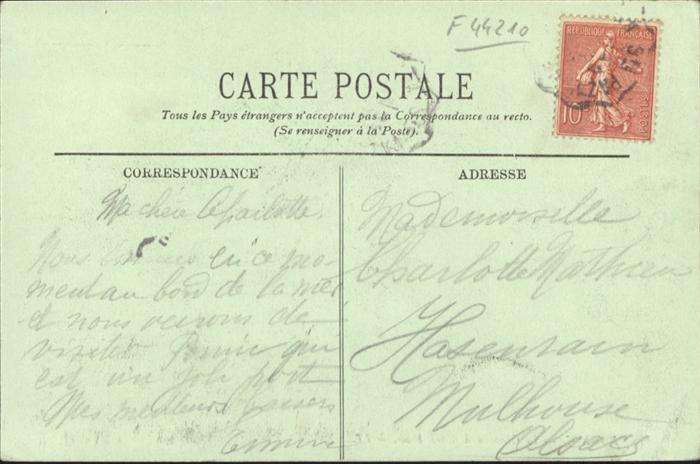 F 44210
RÉPUBLIQUE FRANÇAISE
10
CARTE POSTALE
Tous les Pays étrangers n'acceptent pas la Correspondance au recto.
(Se renseigner à la Poste).
CORRESPONDANCE
Ma chère Charlotte
Nous en ce mo-
ment au bord de la mer
et nous venons de
visiter qui
est un joli port
Mes meilleurs baisers
ADRESSE
Mademoiselle
Charlotte Mathieu
Hasenrain
Mulhouse
Alsace